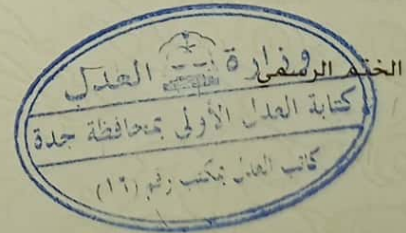 الختم الرسمي
وزارة العدل
كتابة العدل الأولى بمحافظة جدة
كاتب العدل بمكتب رقم (١٦)